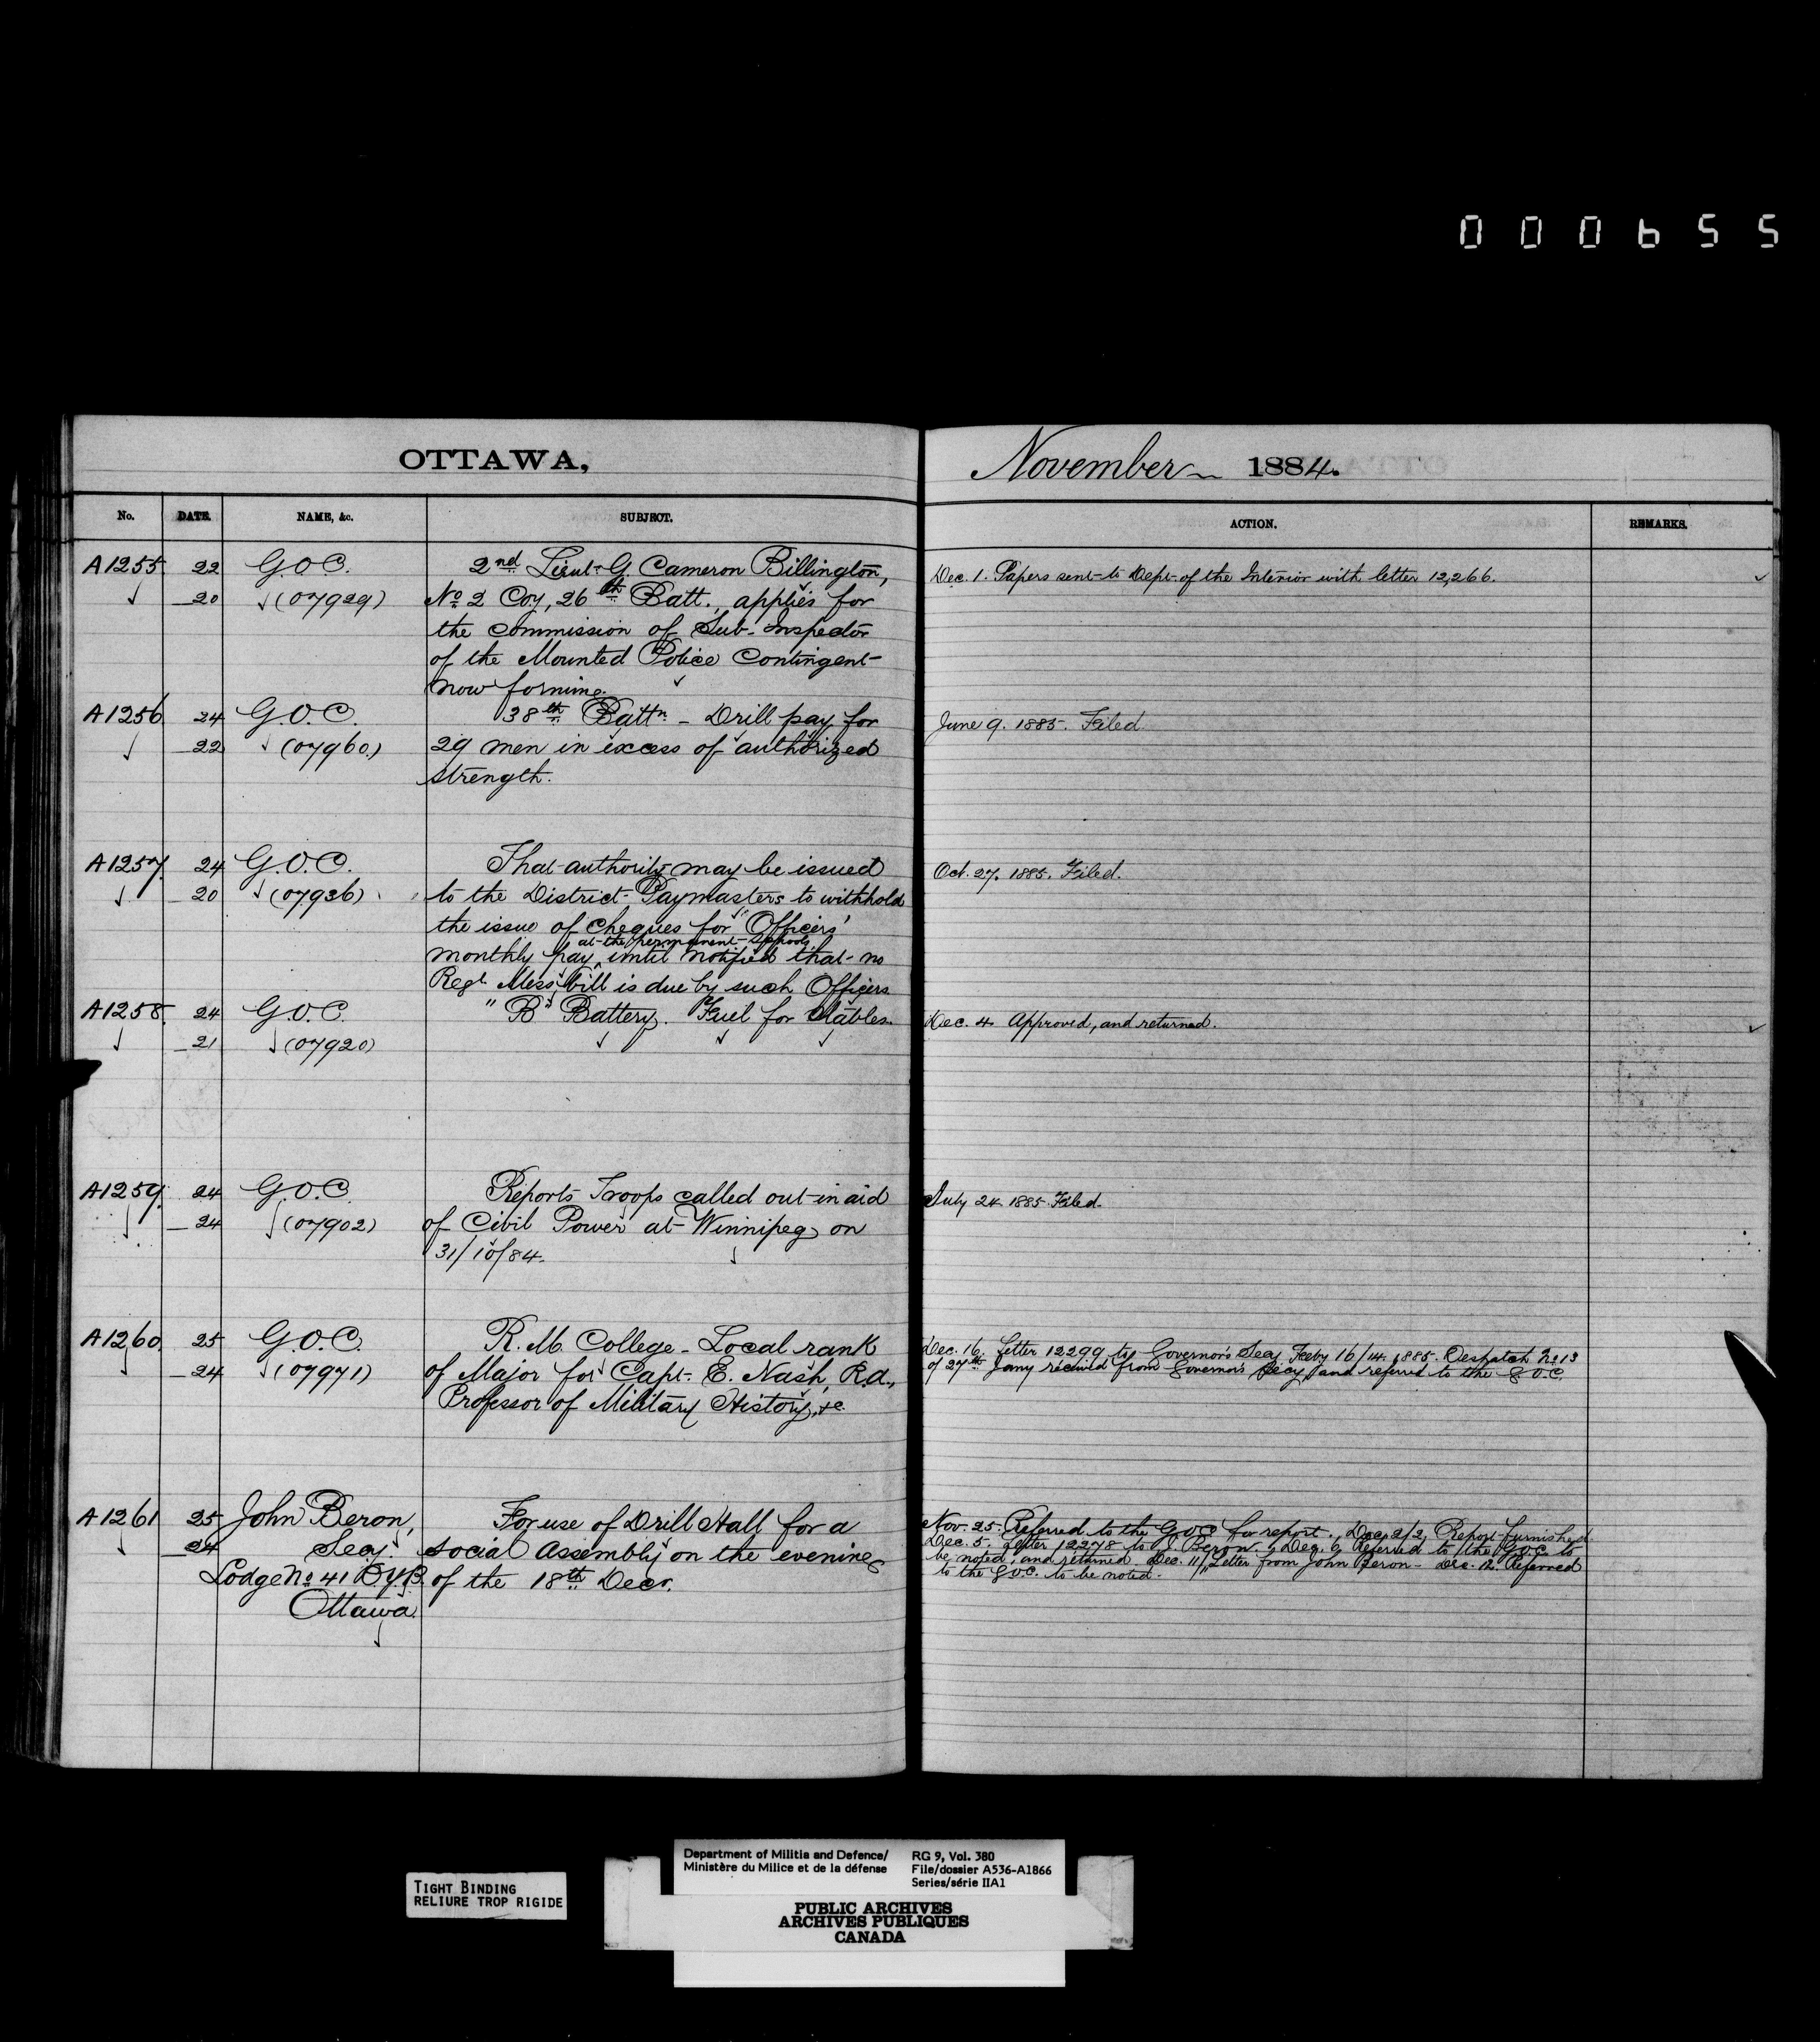 000655
OTTAWA,
November 1884.
No. DATE. NAME, &c. SUBJECT. ACTION. REMARKS.
A1255 22 G.O.C. 2nd Lieut. G Cameron Billington, Dec. 1. Papers sent to Dept. of the Interior with letter 12,266.
20 (07929) No 2 Coy, 26th Batt., applies for
the commission of Sub-Inspector
of the Mounted Police Contingent
now forming.
A1256 24 G.O.C. 38th Battn. - Drill pay for June 9. 1885. Filed
22 (07960) 29 men in excess of authorized
strength.
A1257. 24 G.O.C. That authority may be issued Oct. 27. 1885. Filed.
20 (07936) to the District Paymasters to withhold
the issue of cheques for Officers'
at the permanent Schools
monthly pay, until notified that no
Regt. Mess bill is due by such Officers
A1258. 24 G.O.C. "B" Battery. Fuel for Stables. Dec. 4. Approved, and returned.
21 (07920)
A1259. 24 G.O.C. Reports Troops called out in aid July 24. 1885. Filed.
24 (07902) of Civil Power at Winnipeg on
31/10/84.
A1260. 25 G.O.C. R. M. College - Local rank Dec. 16. Letter 12299 to Governor's Secy. Feby 16/14. 1885. Despatch No 13
24 (07971) of Major for Capt. E. Nash, R.A., of 27th Jany received from Governor's Secy, and referred to the G.O.C.
Professor of Military History, &c.
A1261 25 John Beron, For use of Drill Hall for a Nov. 25. Referred to the G.O.C. for report. Dec. 2/2. Report furnished.
24 Secy. social Assembly on the evening Dec. 5. Letter 12278 to J. Beron. Dec. 6 Referred to the G.O.C. to
Lodge No 41 O.Y.B. of the 18th Decr. be noted, and returned. Dec. 11/11 Letter from John Beron - Dec. 12. Referred
Ottawa. to the G.O.C. to be noted.
TIGHT BINDING
RELIURE TROP RIGIDE
Department of Militia and Defence/ RG 9, Vol. 380
Ministère du Milice et de la défense File/dossier A536-A1866
Series/série IIA1
PUBLIC ARCHIVES
ARCHIVES PUBLIQUES
CANADA